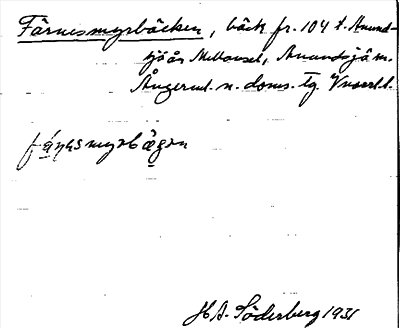 Färnesmyrbäcken, bäck fr. 104 t. Anund-
sjöån Mellansel, Anundsjö sn.
Ångerml. n. doms. Tg. Vnorrl. l.
fä́ṇạsmyrbägən
H A. Söderberg 1931